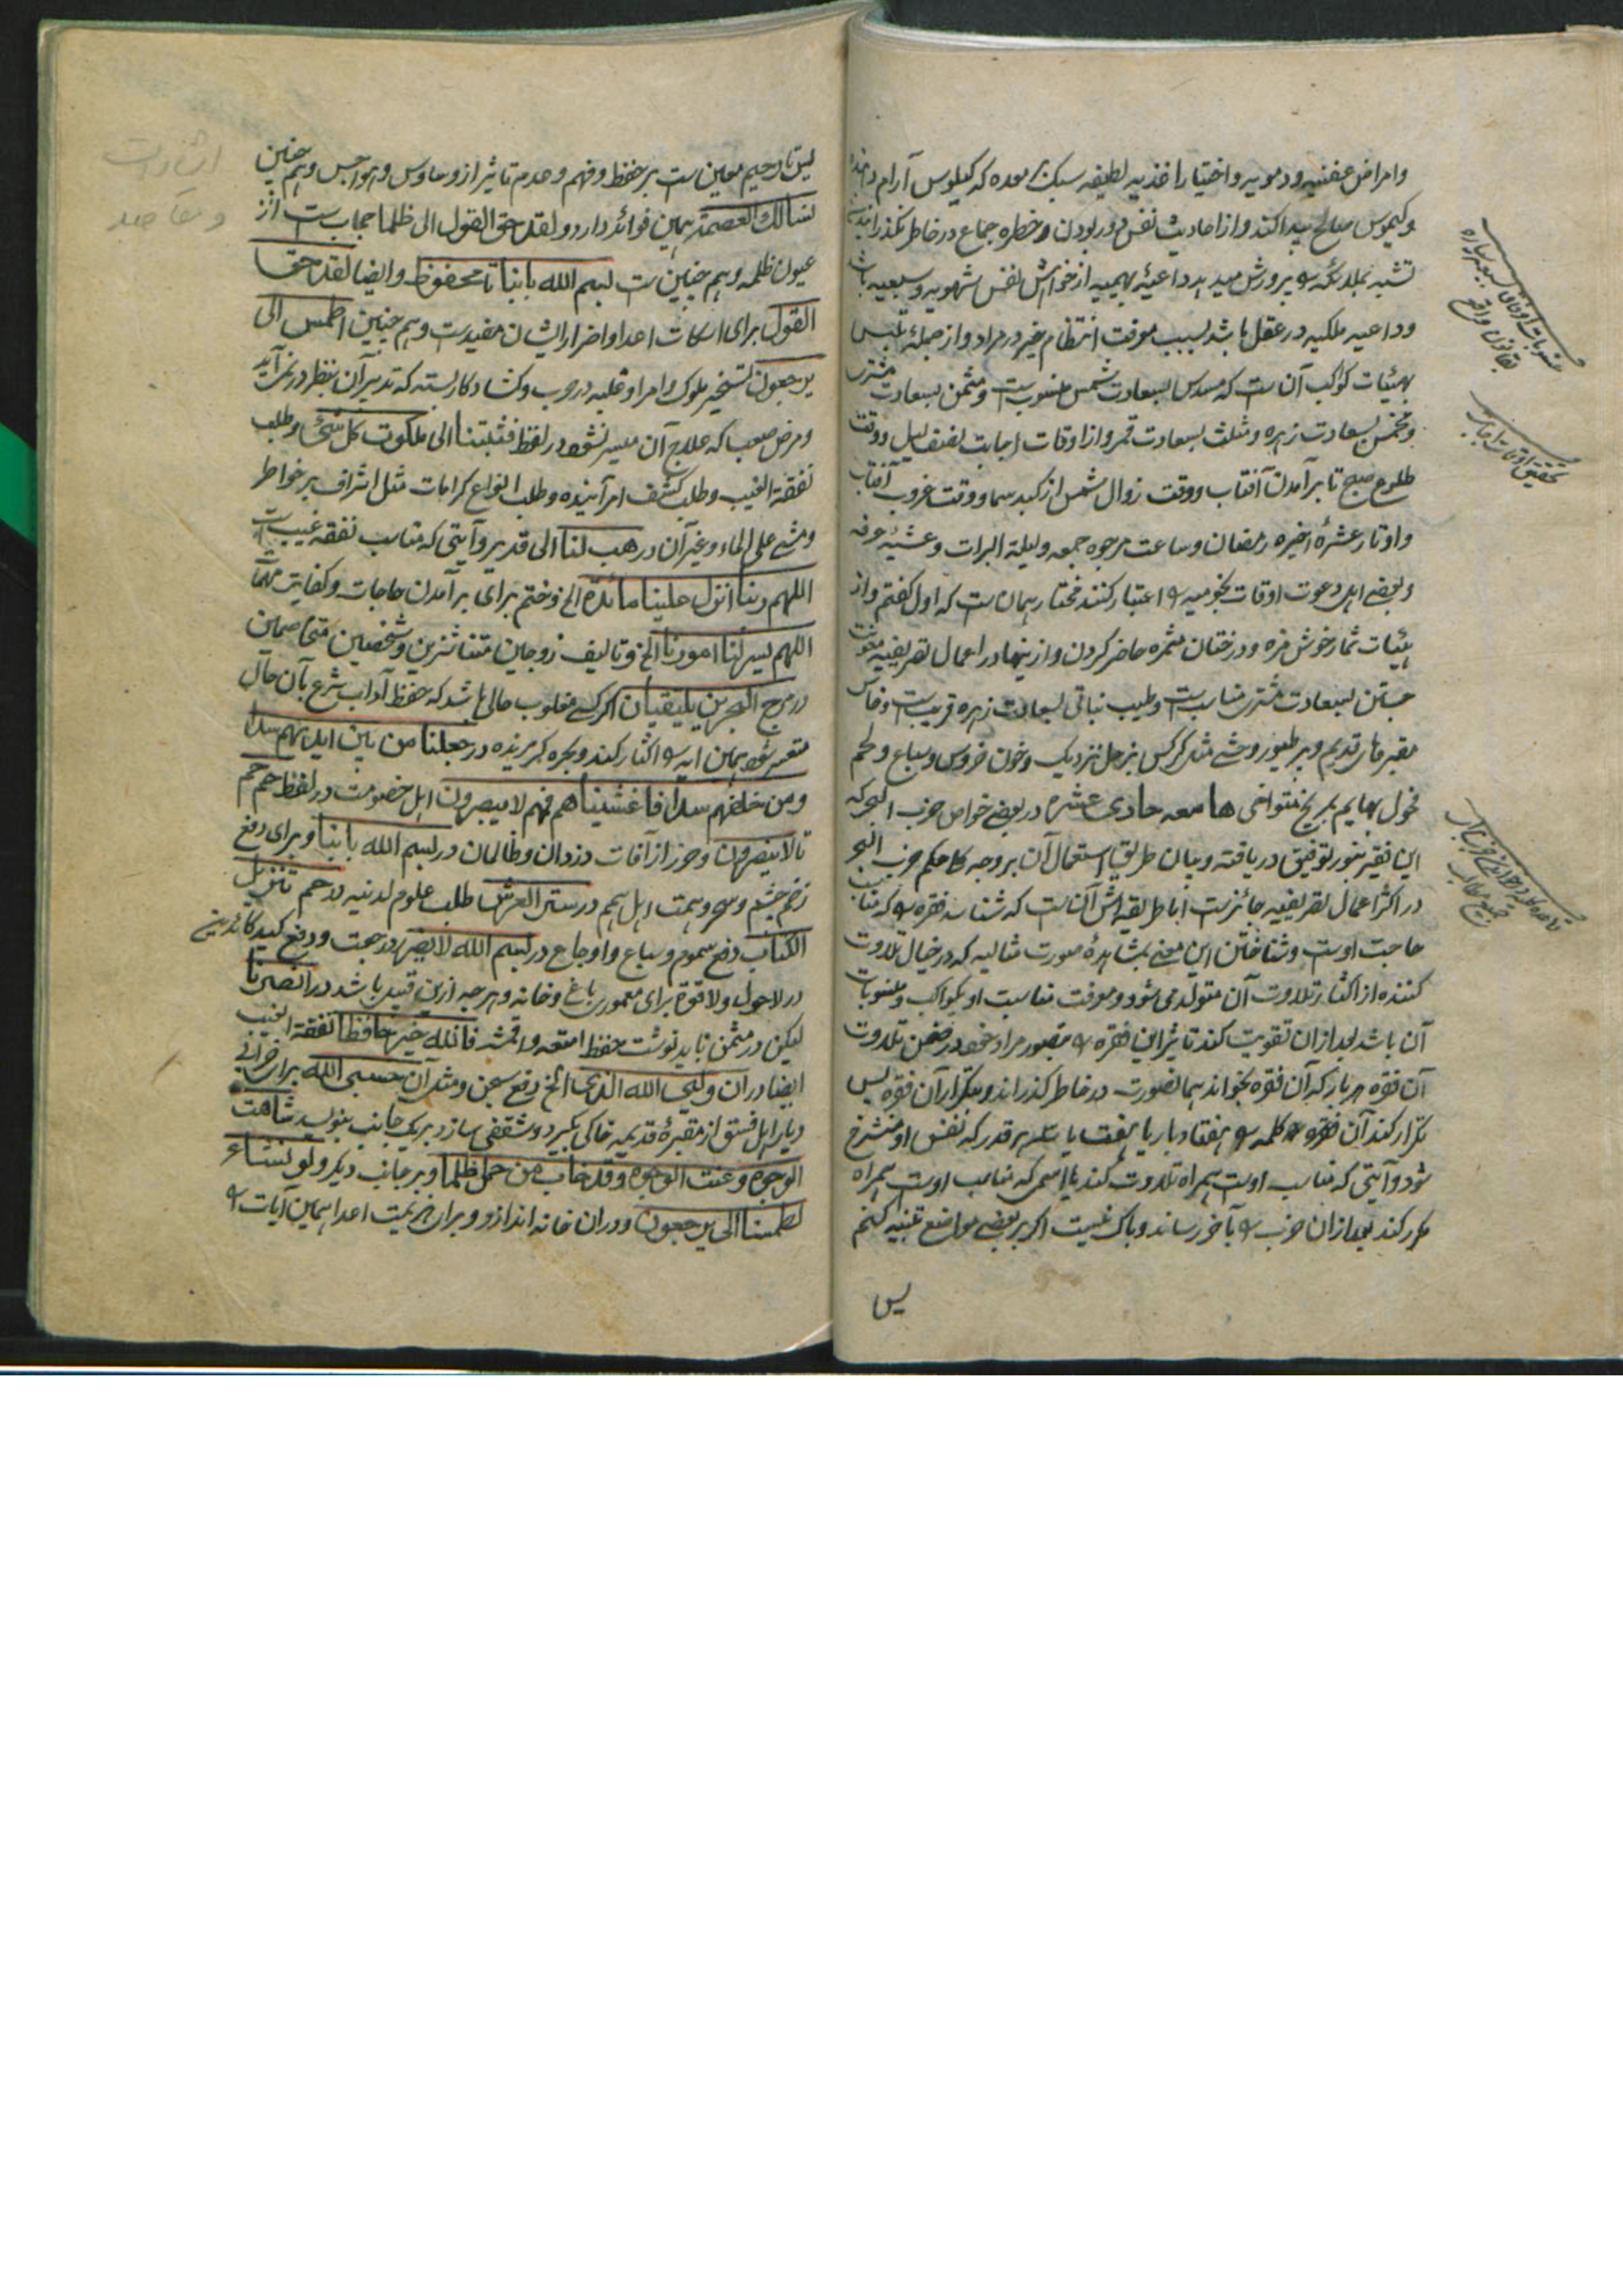 وامراض عفنیه ودمویه واختیار اغذیه لطیفه سبک بر معده که کیلوس آرام دهد
وکیموس صالح پیدا کند واز احادیث نفس دور بودن وخطره جماع در خاطر نگذرانیدن
تشبه بملائکه را پرورش میدهد داعیهٔ بهیمیه از خواهش نفس شهویه وسبعیه باشد
وداعیه ملکیه در عقل باشد بسبب موفت انتظام خیر در مراد واز جملهٔ تلبس
بهیئات کواکب آن ست که مسدس بسعادت شمس منسوب ست ومثمن بسعادت مشتری
ومخمس بسعادت زهره ومثلث بسعادت قمر واز اوقات اجابت نصف لیل ووقت
طلوع صبح تا برآمدن آفتاب ووقت زوال شمس از کبد سما ووقت غروب آفتاب
واوتار عشرهٔ اخیره رمضان وساعت مرجوه جمعه ولیلة البرات وعشیهٔ عرفه
وبعضی اهل دعوت اوقات نجومیه را اعتبار کنند مختار همان ست که اول گفتم واز
هیئات ثمار خوش مزه ودرختان مثمره حاضر کردن واز ینها در اعمال تصریفیه معونت
جستن بسعادت مشتری مناسب ست وطیب نباتی بسعادت زهره قریب ست وخاک
مقبرهای قدیم وپر طیور وحشی مثل کرکس بزحل نزدیک وخون خروس وسباع ولحم
فحول بهایم بمریخ متواخی هامعه حادی عشره در بعضی خواص حزب البحر که
این فقیر بنور توفیق دریافته وبیان طریق استعمال آن بر وجه کلا حکم حزب البحر
در اکثر اعمال تصریفیه جائز ست اما طریقه اش آنست که شناسد فقره را که مناسب
حاجت اوست وشناختن این معنی بمشاهدهٔ صورت مثالیه که در خیال تلاوت
کننده از اکثار تلاوت آن متولد می شود ومعرفت مناسبت او بکواکب ومنسوبات
آن باشد بعد ازان تقویت کند تاثیر این فقره را بتصور مراد خود در ضمن تلاوت
آن فقره هر بار که آن فقره بخواند همانصورت در خاطر گذراند وبتکرار آن فقره پس
تکرار کند آن فقره و کلمه را هفتاد بار یا هفت یا سه هر قدر که نفس او منشرح
شود وآیتی که مناسب اوست همراه تلاوت کند یا اسمی که مناسب اوست همراه
مکرر کند بعد ازان حزب را بآخر رساند وباک نیست اگر بر بعضی مواضع تنبیه کنم
پس
تحقیق اوقات اجابت
لیل تا رحیم معین ست بر حفظ وفهم وعدم تاثیر از وساوس وهواجس وهم چنین
نسالك العصمة همین فوائد دارد ولقد حق القول الی ظلما حجاب ست از
عیون ظلمه وهم چنین ست بسم الله بابنا تا محفوظ وایضا لقد حق
القول برای اسکات اعدا واضرار ایشان مفیدست وهم چنین اطمس الی
یرجعون تسخیر ملوک وامرا وغلبه در حرب وکشاد کار بسته که تدبیر آن بنظر در نمی آید
ومرض صعب که علاج آن میسر نشود در لفظ فثبتنا الی ملکوت کل شئ وطلب
نفقة الغیب وطلب کشف امر آینده وطلب انواع کرامات مثل اشراف بر خواطر
ومشی علی الماء وغیر آن در هب لنا الی قدیر وآیتی که مناسب نفقه غیب ست
اللهم ربنا انزل علینا مائدة الخ وختم برای برآمدن حاجات وکفایت مهمات
اللهم یسر لنا امورنا الخ وتالیف زوجین متنشزین وشخصین متخاصمین
در مرج البحرین یلتقیان اگر کسی مغلوب حالی باشد که حفظ آداب شرع بآن حال
متعسر شود همین آیه را اکثار کند وبچه کریزنده در جعلنا من بین ایدیهم سدا
ومن خلفهم سدا فاغشیناهم فهم لا یبصرون اهل خصومت در لفظ حم حم
تا لا ینصرون وحرز از آفات دزدان وظالمان در بسم الله بابنا وبرای دفع
زخم چشم وسحر وهمت اهل هم در ستر العرش طلب علوم لدنیه در حم تنزیل
الکتاب دفع سموم وسباع واوجاع در بسم الله لا یضر ورجعت ودفع کید کائدین
در لا حول ولا قوة برای معموری باغ وخانه وهر چه ازین قبیل باشد در انصرنا
لیکن در مثمن باید نوشت حفظ امتعه واقمشه فالله خیر حافظا نفقة الغیب
ایضا در ان ولیی الله الذی الخ دفع سجن ومثل آن حسبی الله برای خرابی
دیار اهل فسق از مقبرهٔ قدیمه خاکی بگیرد وشقفی سازد بر یک جانب بنویسد شاهت
الوجوه وعنت الوجوه وقد خاب من حمل ظلما وبر جانب دیگر ولو نشاء
لطمسنا الی یرجعون ودران خانه اندازد وبرای هزیمت اعدا همین آیات را
اشارات
ومقاصد